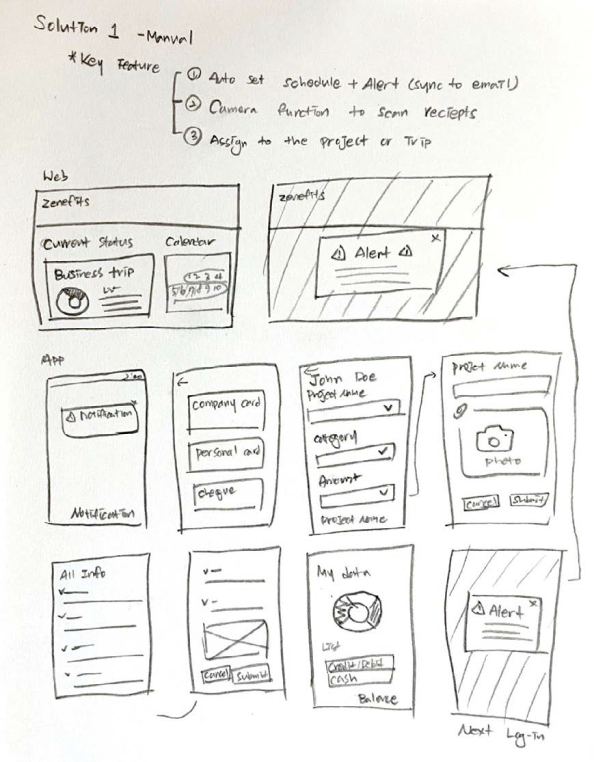 Solution 1 -Manual
*Key Feature
① Auto set schedule + Alert (sync to email)
② Camera function to scan reciepts
③ Assign to the project or Trip
Web
zenefits
Current Status
Calendar
Business trip
1 2 3 4
5 6 7 8 9 10
zenefits
Alert
x
App
Notification
x
Notification
company card
personal card
cheque
John Doe
Project Name
category
Amount
Project Name
project name
photo
cancel
Submit
All Info
cancel
Submit
My data
List
Credit/Debit
cash
Balance
Alert
x
Next Log-In